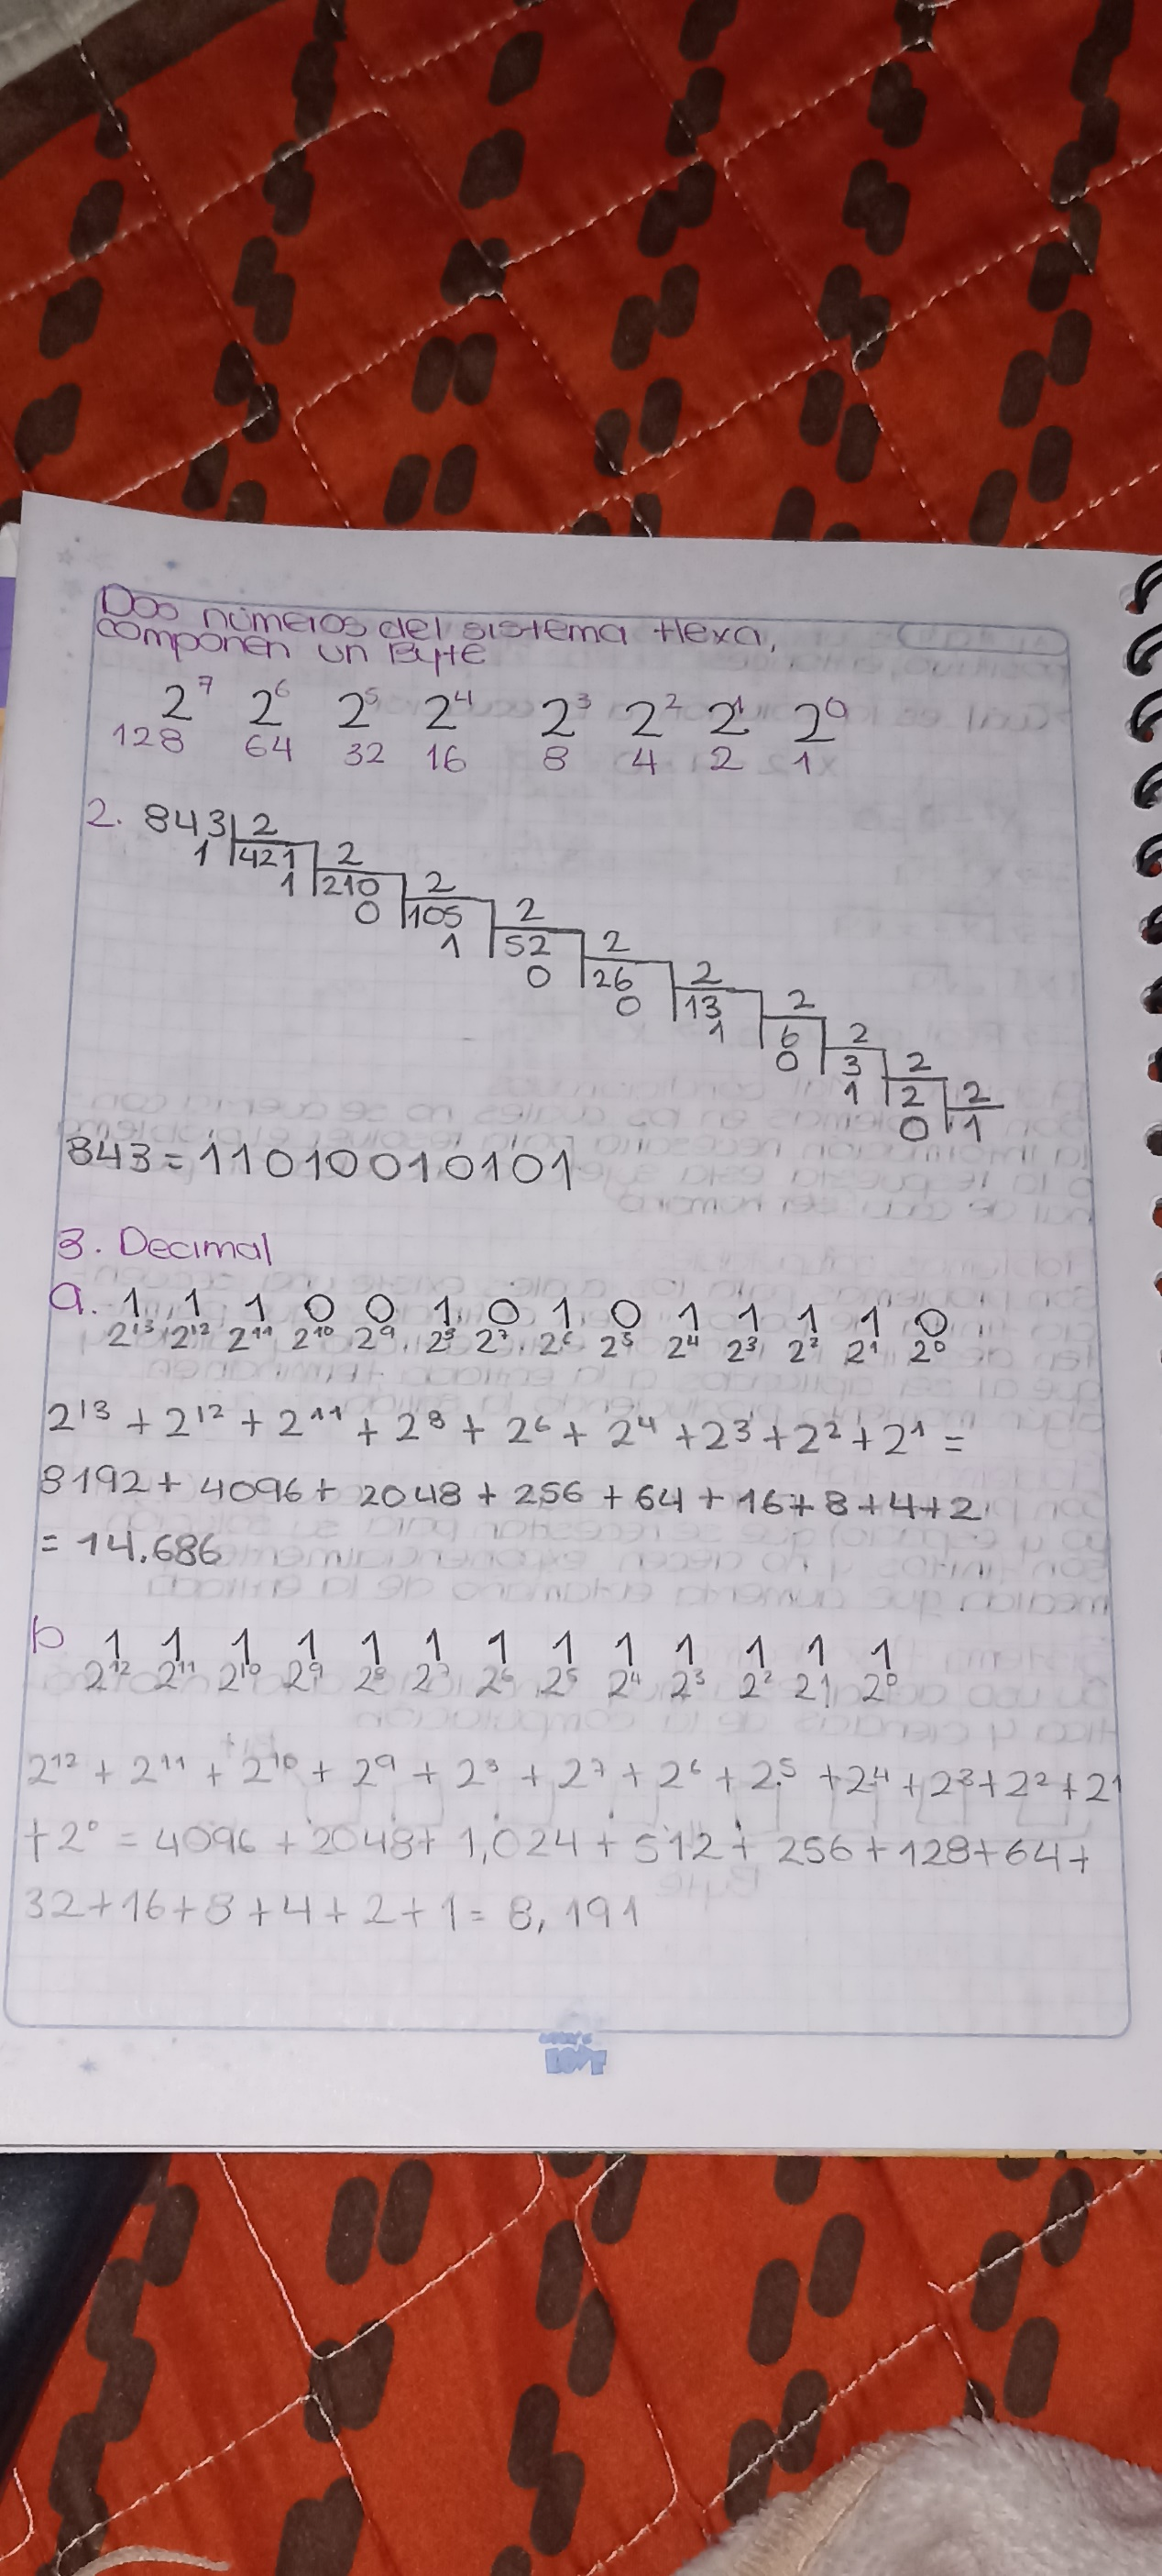 Dos números del sistema Hexa,
componen un Byte
2⁷ 2⁶ 2⁵ 2⁴ 2³ 2² 2¹ 2⁰
128 64 32 16 8 4 2 1
2. 843 2
1 421 2
1 210 2
0 105 2
1 52 2
0 26 2
0 13 2
1 6 2
0 3 2
1 2 2
0 1
843 = 11010010101
3. Decimal
a. 1 1 1 0 0 1 0 1 0 1 1 1 1 0
2¹³ 2¹² 2¹¹ 2¹⁰ 2⁹ 2⁸ 2⁷ 2⁶ 2⁵ 2⁴ 2³ 2² 2¹ 2⁰
2¹³ + 2¹² + 2¹¹ + 2⁸ + 2⁶ + 2⁴ + 2³ + 2² + 2¹ =
8192 + 4096 + 2048 + 256 + 64 + 16 + 8 + 4 + 2
= 14.686
b 1 1 1 1 1 1 1 1 1 1 1 1 1
2¹² 2¹¹ 2¹⁰ 2⁹ 2⁸ 2⁷ 2⁶ 2⁵ 2⁴ 2³ 2² 2¹ 2⁰
2¹² + 2¹¹ + 2¹⁰ + 2⁹ + 2⁸ + 2⁷ + 2⁶ + 2⁵ + 2⁴ + 2³ + 2² + 2¹
+ 2⁰ = 4096 + 2048 + 1,024 + 512 + 256 + 128 + 64 +
32 + 16 + 8 + 4 + 2 + 1 = 8,191